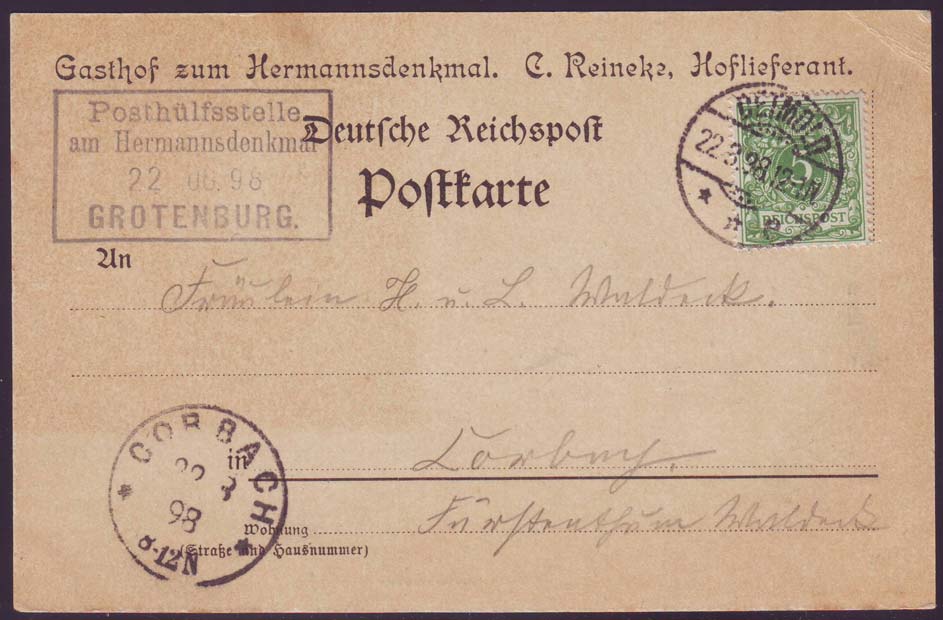 Gasthof zum Hermannsdenkmal. C. Reineke, Hoflieferant.
Posthülfsstelle
am Hermannsdenkmal
22 98
GROTENBURG.
Deutsche Reichspost
Postkarte
DETMOLD
22.3.98.12-1N
* * e
5
REICHSPOST
An
Fräulein H. u. L. Waldeck.
CORBACH
22 3
98
8-12N
in
Corbach,
Wohnung
(Straße und Hausnummer)
Fürstenthum Waldeck